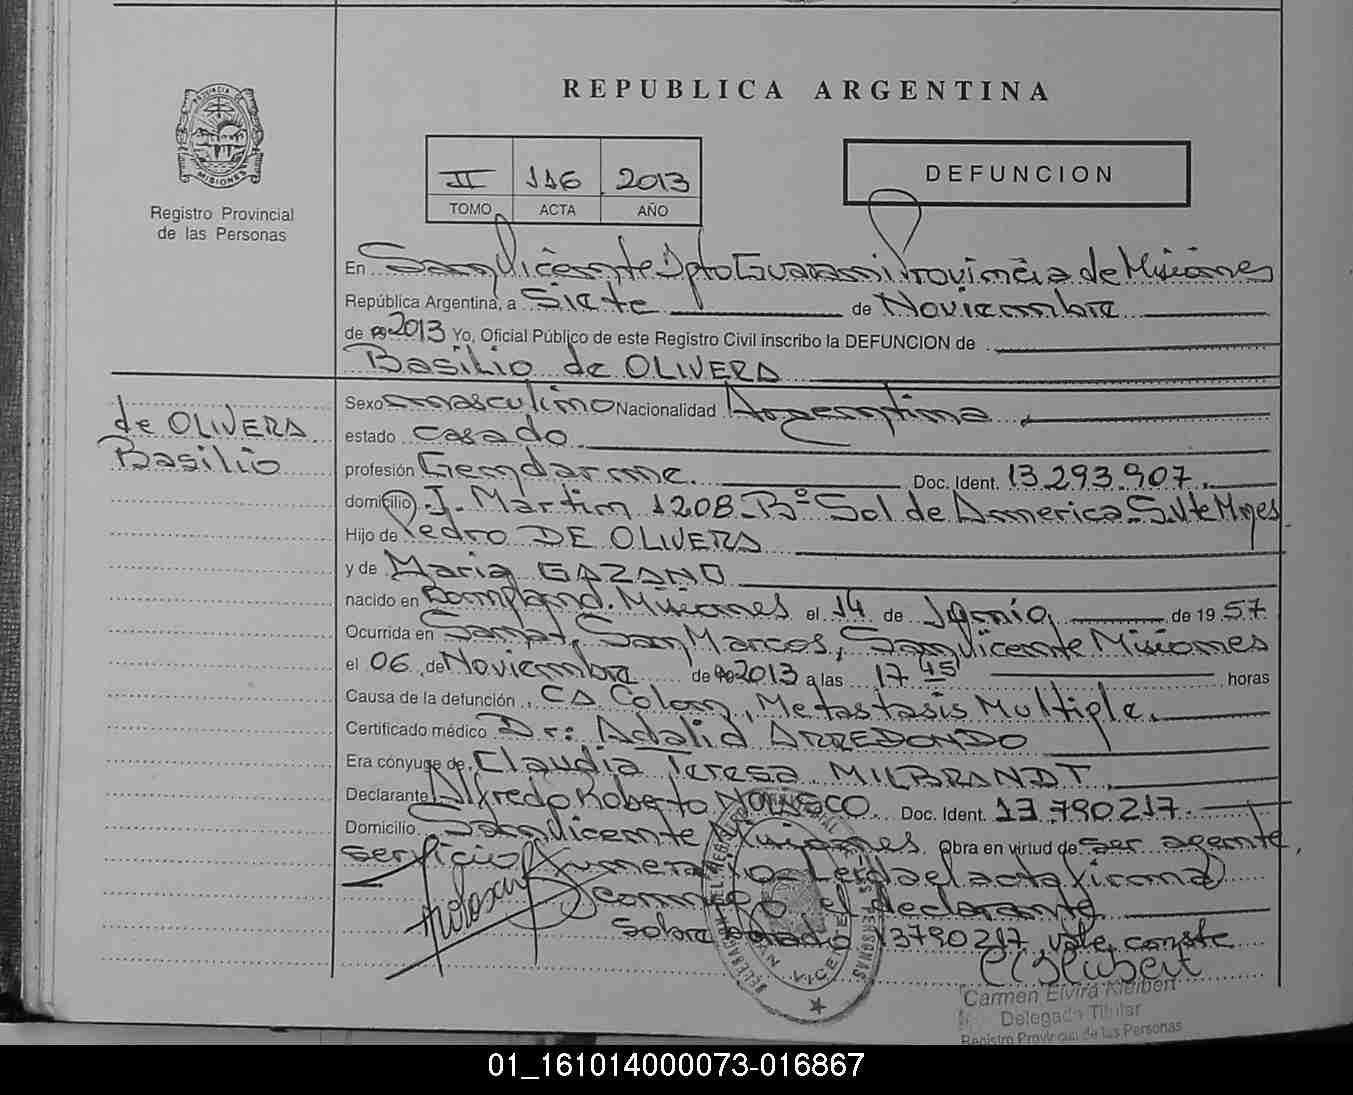 REPUBLICA ARGENTINA
PROVINCIA DE MISIONES
Registro Provincial
de las Personas
II 116 2013
TOMO ACTA AÑO
DEFUNCION
En San Vicente Dpto Guarani Provincia de Misiones
República Argentina, a Siete de Noviembre
de 2013 Yo, Oficial Público de este Registro Civil inscribo la DEFUNCION de
Basilio de OLIVERA
de OLIVERA
Basilio
Sexo masculino Nacionalidad Argentina
estado casado
profesión Gendarme. Doc. Ident. 13.293.907.
domicilio J. Martin 1208-Bº Sol de America-S.Vte Mnes
Hijo de Pedro DE OLIVERA
y de Maria GAZANO
nacido en Bompland. Misiones el 14 de Junio de 19 57
Ocurrida en Sanat. San Marcos, San Vicente Misiones
el 06 de Noviembre de 2013 a las 17 45 horas
Causa de la defunción CA Colon, Metastasis Multiple.
Certificado médico Dr: Adalid ARREDONDO
Era cónyuge de Claudia Teresa MILBRANDT
Declarante Alfredo Roberto NOLASCO. Doc. Ident. 13.790217.
Domicilio San Vicente Misiones. Obra en virtud de ser agente
servicio funerario- Leida el acta firma
conmigo el declarante
Sobre 13790217 vale conste
VICENTE
Carmen Elvira Kleibert
Delegada Titular
Registro Provincial de las Personas
01_161014000073-016867